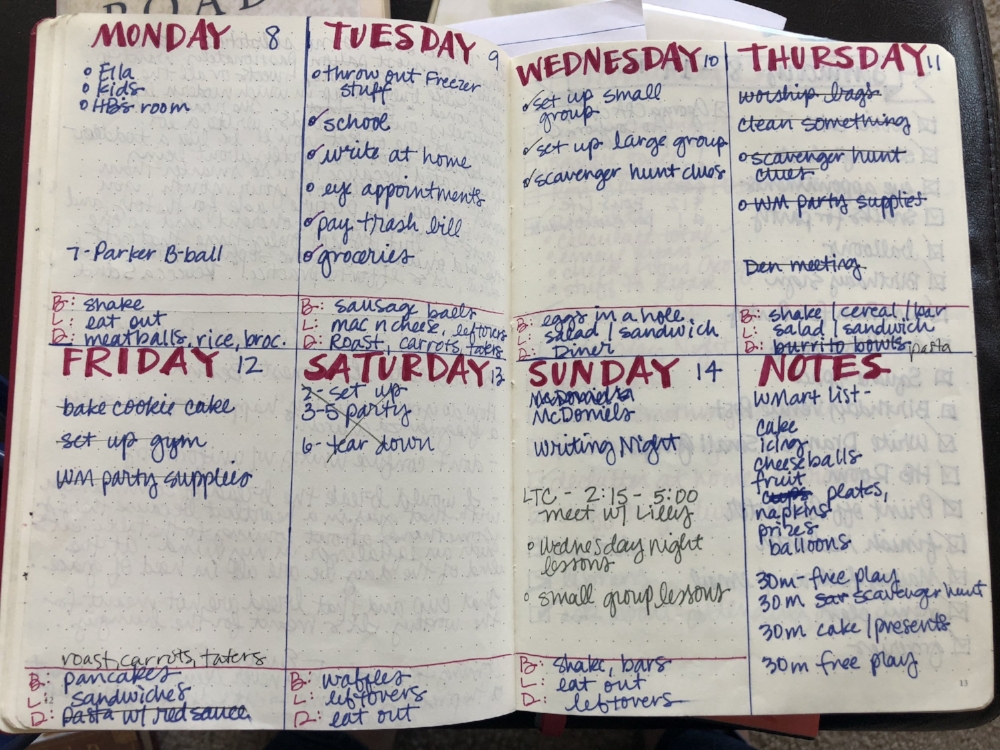 ROAD
MONDAY 8
Ella
kids
HB's room
7-Parker B-ball
B: shake
L: eat out
D: meatballs, rice, broc.
TUESDAY 9
throw out freezer
stuff
school
write at home
eye appointments
pay trash bill
groceries
B: sausage balls
L: mac n cheese, leftovers
D: Roast, carrots, taters
WEDNESDAY 10
set up small
group
set up large group
scavenger hunt clues
B: eggs in a hole
L: salad / sandwich
D: Diner
THURSDAY 11
worship bags
clean something
scavenger hunt
clues
WM party supplies
Den meeting
B: shake / cereal / bar
L: salad / sandwich
D: burrito bowls pasta
FRIDAY 12
bake cookie cake
set up gym
WM party supplies
roast, carrots, taters
B: pancakes
L: sandwiches
D: Pasta w/ red sauce
12
SATURDAY 13
2- set up
3-5 party
6- tear down
B: waffles
L: leftovers
D: eat out
SUNDAY 14
McDaniels
McDaniels
Writing Night
LTC - 2:15-5:00
meet w/ Lilly
Wednesday night
lessons
small group lessons
B: shake, bars
L: eat out
D: leftovers
NOTES
Wmart list-
cake
icing
cheeseballs
fruit
cups plates,
napkins
prizes
balloons
30m- free play
30m sar scavenger hunt
30m cake / presents
30m free play
13